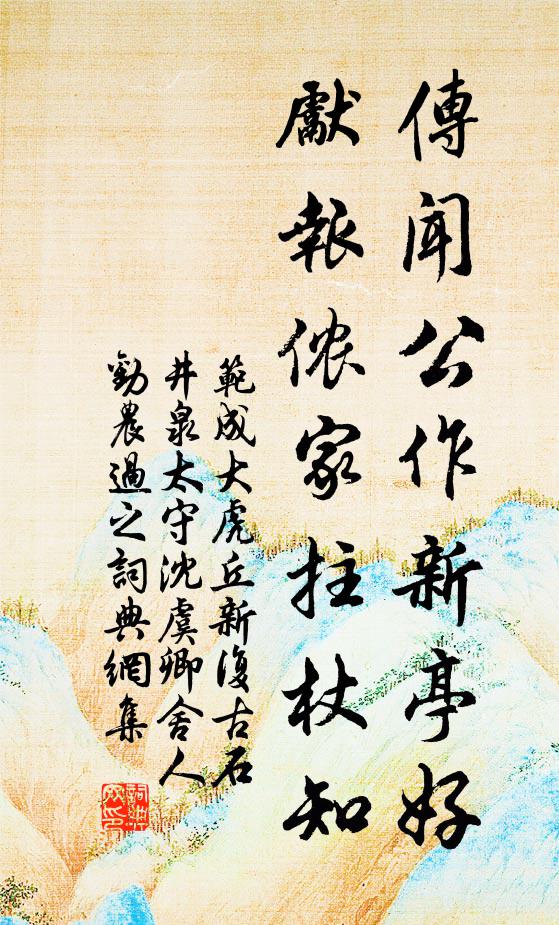 傳聞公作新亭好
獻報儂家拄杖知
範成大虎丘新復古石
井泉太守沈虞卿舍人
勸農過之詞典網集